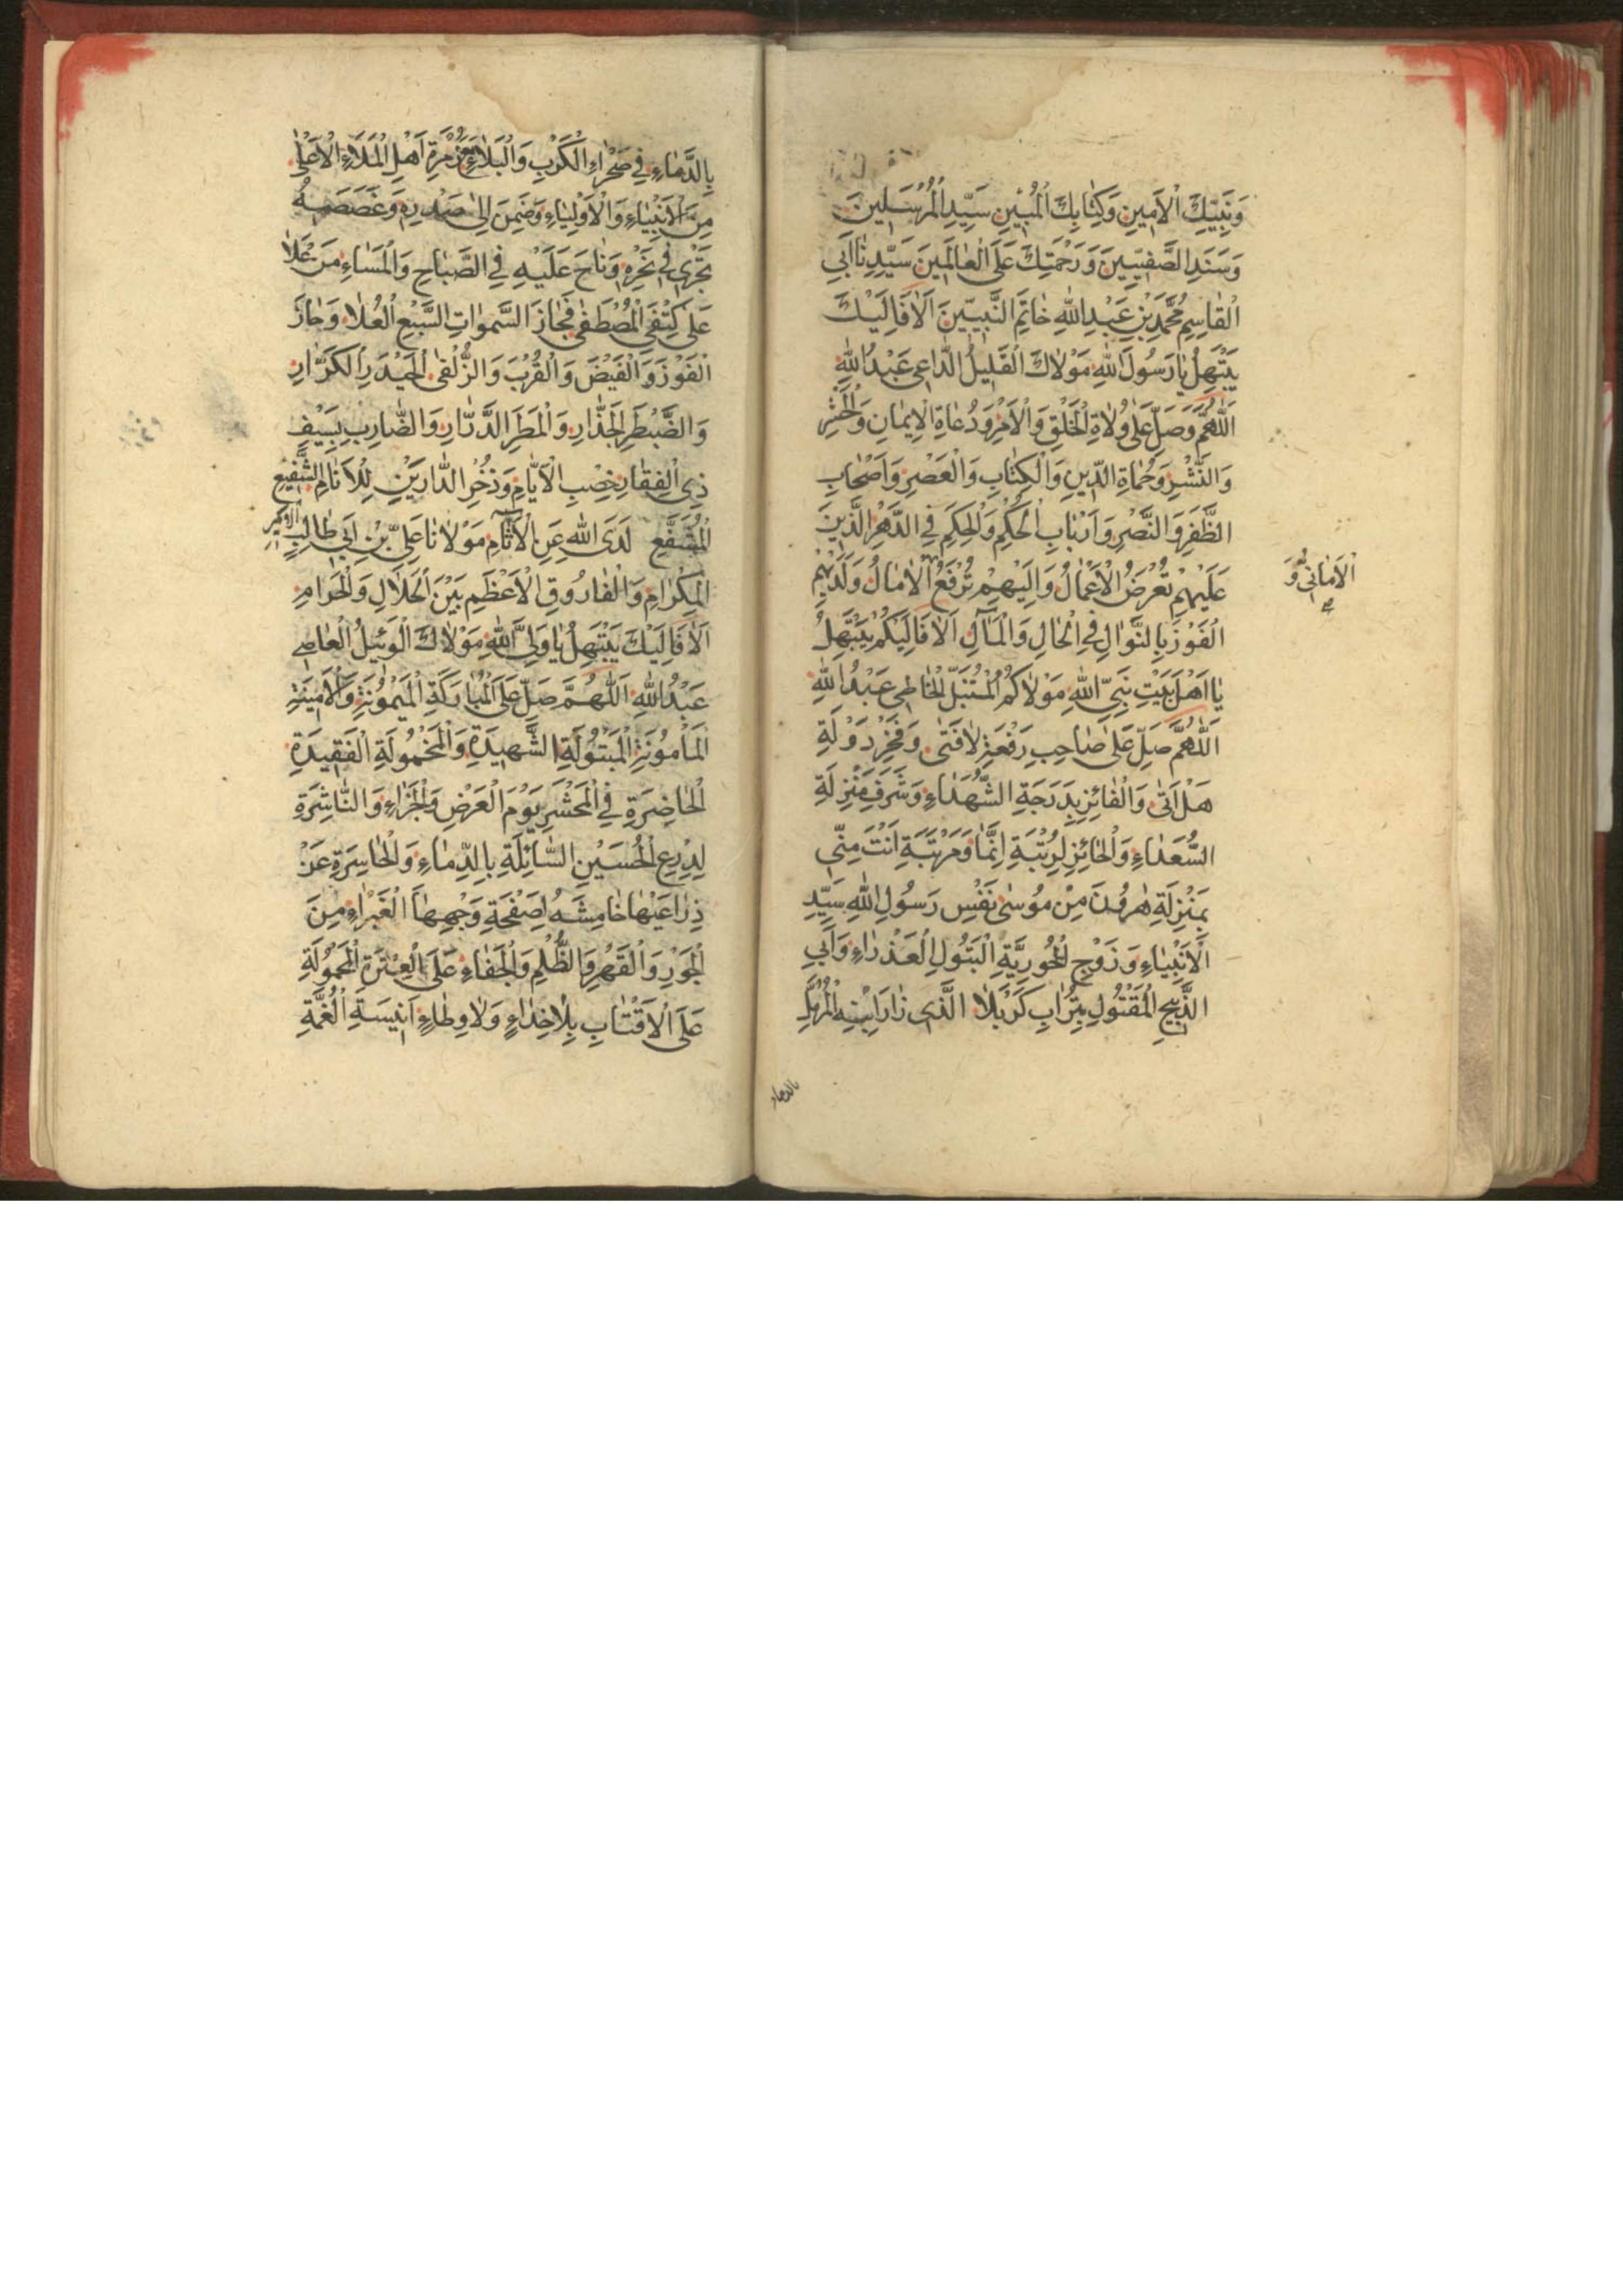 وَنَبِيِّكَ الْاَمِينِ وَكِتَابِكَ الْمُبِينِ سَيِّدِ الْمُرْسَلِينَ
وَسَنَدِ الصَّفِيِّينَ وَرَحْمَتِكَ عَلَى الْعَالَمِينَ سَيِّدِنَا اَبِي
الْقَاسِمِ مُحَمَّدِ بْنِ عَبْدِ اللهِ خَاتَمِ النَّبِيِّينَ اَلَا فَاِلَيْكَ
يَبْتَهِلُ يَا رَسُولَ اللهِ مَوْلَاكَ الْقَلِيلُ الدَّاعِي عَبْدُ اللهِ
اَللّٰهُمَّ وَصَلِّ عَلَى وُلَاةِ الْخَلْقِ وَالْاَمْرِ وَدُعَاةِ الْاِيمَانِ وَالْحَشْرِ
وَالنَّشْرِ وَحُمَاةِ الدِّينِ وَالْكِتَابِ وَالْعَصْرِ وَاَصْحَابِ
الظَّفَرِ وَالنَّصْرِ وَاَرْبَابِ الْحُكْمِ وَالْحِكَمِ فِي الدَّهْرِ الَّذِينَ
عَلَيْهِمْ تُعْرَضُ الْاَعْمَالُ وَاِلَيْهِمْ تُرْفَعُ الْاٰمَالُ وَلَدَيْهِمْ
الْاَمَانِيُّ وَ
الْفَوْزَ بِالنَّوَالِ فِي الْحَالِ وَالْمَآلِ اَلَا فَاِلَيْكُمْ يَبْتَهِلُ
يَا اَهْلَ بَيْتِ نَبِيِّ اللهِ مَوْلَاكُمُ الْمُتَبَتِّلُ الْخَاطِي عَبْدُ اللهِ
اَللّٰهُمَّ صَلِّ عَلَى صَاحِبِ رَفْعَةِ لَا فَتٰى وَفَخْرِ دَوْلَةِ
هَلْ اَتٰى وَالْفَائِزِ بِدَرَجَةِ الشُّهَدَاءِ وَشَرَفِ مَنْزِلَةِ
السُّعَدَاءِ وَالْحَائِزِ لِرُتْبَةِ اِنَّمَا وَمَرْتَبَةِ اَنْتَ مِنِّي
بِمَنْزِلَةِ هٰرُونَ مِنْ مُوسٰى نَفْسِ رَسُولِ اللهِ سَيِّدِ
الْاَنْبِيَاءِ وَزَوْجِ الْحُورِيَّةِ الْبَتُولِ الْعَذْرَاءِ وَاَبِي
الذَّبِيحِ الْمَقْتُولِ بِتُرَابِ كَرْبَلَا الَّذِي زَارَ ابْنِهِ الْمُرَمَّلِ
بالدماء
بِالدِّمَاءِ فِي صَحْرَاءِ الْكَرْبِ وَالْبَلَاءِ زُمْرَةِ اَهْلِ الْمَلَاءِ الْاَعْلٰى
مِنَ الْاَنْبِيَاءِ وَالْاَوْلِيَاءِ وَضَمِنَ اِلٰى صَدْرِهِ وَغَصَصَهُ
تَجْرِي فِي نَحْرِهِ وَنَاحَ عَلَيْهِ فِي الصَّبَاحِ وَالْمَسَاءِ مَنْ عَلَا
عَلَى كَتِفَيِ الْمُصْطَفٰى فَجَازَ السَّمٰوَاتِ السَّبْعَ الْعُلَا وَحَازَ
الْفَوْزَ وَالْفَيْضَ وَالْقُرْبَ وَالزُّلْفٰى الْحَيْدَرِ الْكَرَّارِ
وَالضَّيْطَرِ الْجَذَّارِ وَالْمَطَرِ الدَّرَّارِ وَالضَّارِبِ بِسَيْفِ
ذِي الْفِقَارِ خِصْبِ الْاَيَّامِ وَذُخْرِ الدَّارَيْنِ لِلْاَنَامِ الشَّفِيعِ
الْمُشَفَّعِ لَدَى اللهِ عَنِ الْاٰثَامِ مَوْلَانَا عَلِيِّ بْنِ اَبِي طَالِبٍ الامير
الْمِكْرَامِ وَالْفَارُوقِ الْاَعْظَمِ بَيْنَ الْحَلَالِ وَالْحَرَامِ
اَلَا فَاِلَيْكَ يَبْتَهِلُ يَا وَلِيَّ اللهِ مَوْلَاكَ الْوَئِيلُ الْعَاصِي
عَبْدُ اللهِ اَللّٰهُمَّ صَلِّ عَلَى الْمُبَارَكَةِ الْمَيْمُونَةِ وَالْاَمِينَةِ
الْمَأْمُونَةِ الْمَبْتُولَةِ الشَّهِيدَةِ وَالْمَخْمُولَةِ الْفَقِيدَةِ
الْحَاضِرَةِ فِي الْمَحْشَرِ يَوْمَ الْعَرْضِ وَالْجَزَاءِ وَالنَّاشِرَةِ
لِدِرْعِ الْحُسَيْنِ السَّائِلَةِ بِالدِّمَاءِ وَالْحَاسِرَةِ عَنْ
ذِرَاعَيْهَا خَامِشَةً لِصَفْحَةِ وَجْهِهَا الْغَبْرَاءِ مِنَ
الْجَوْرِ وَالْقَهْرِ وَالظُّلْمِ وَالْجَفَاءِ عَلَى الْعِتْرَةِ الْمَحْمُولَةِ
عَلَى الْاَقْتَابِ بِلَا حِذَاءٍ وَلَا وِطَاءٍ اَنِيسَةِ الْغُمَّةِ